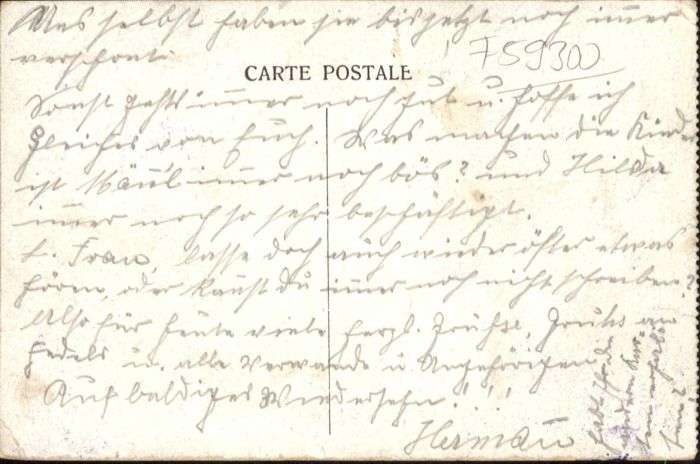 Uns selbst haben sie bis jetzt noch immer
verschont.
759300
CARTE POSTALE
Sonst gehts immer noch gut u. hoffe ich
gleiches von Euch. Was machen die Kinder
ist Mäul immer noch bös? und Hilda
immer noch so sehr beschäftigt.
L. Frau, lasse doch auch wieder öfter etwas
hören, oder kannst du immer noch nicht schreiben.
Also für heute viele herzl. Grüße, Gruß an
Fedels u. alle Verwande u. Angehörigen
Auf baldiges Wiedersehn!!!
Hermann
habt Ihr die